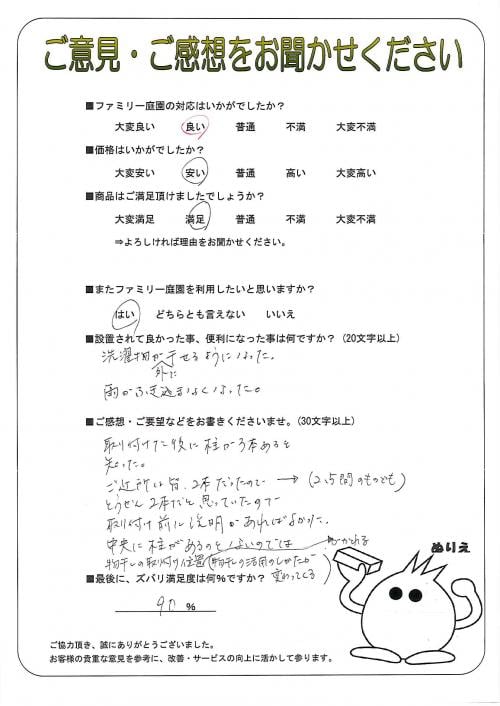 ご意見・ご感想をお聞かせください
■ファミリー庭園の対応はいかがでしたか？
大変良い 良い 普通 不満 大変不満
■価格はいかがでしたか？
大変安い 安い 普通 高い 大変高い
■商品はご満足頂けましたでしょうか？
大変満足 満足 普通 不満 大変不満
⇒よろしければ理由をお聞かせください。
■またファミリー庭園を利用したいと思いますか？
はい どちらとも言えない いいえ
■設置されて良かった事、便利になった事は何ですか？（20文字以上）
洗濯物が干せるようになった。
外に
雨がふき込まなくなった。
■ご感想・ご要望などをお書きくださいませ。（30文字以上）
取り付けた後に柱が3本あるを
知った。
ご近所は皆、2本だったので → (2.5間のものでも)
とうぜん2本だと思っていたので
取り付け前に説明があればよかった。
中央に柱があるのとないのでは
物干しの取付け位置(物干しの活用のしかたが
変わってくる
■最後に、ズバリ満足度は何%ですか？
90 %
ぬりえ
ご協力頂き、誠にありがとうございました。
お客様の貴重な意見を参考に、改善・サービスの向上に活かして参ります。